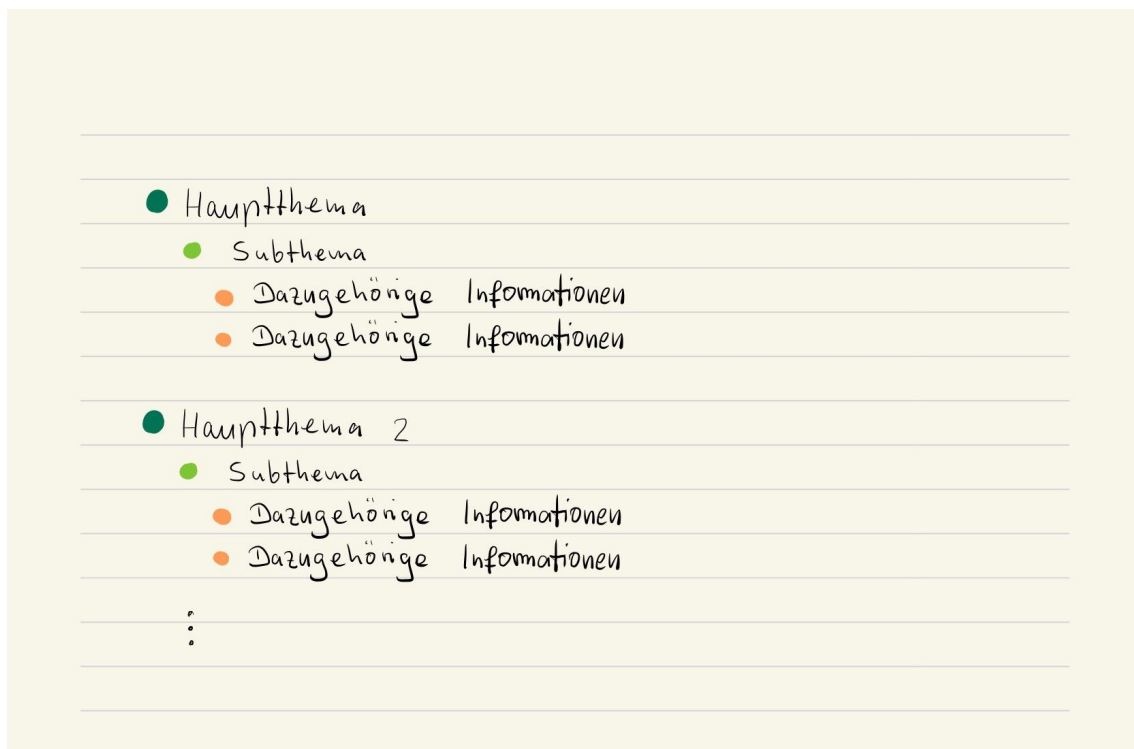 Hauptthema
Subthema
Dazugehörige Informationen
Dazugehörige Informationen
Hauptthema 2
Subthema
Dazugehörige Informationen
Dazugehörige Informationen
⋮